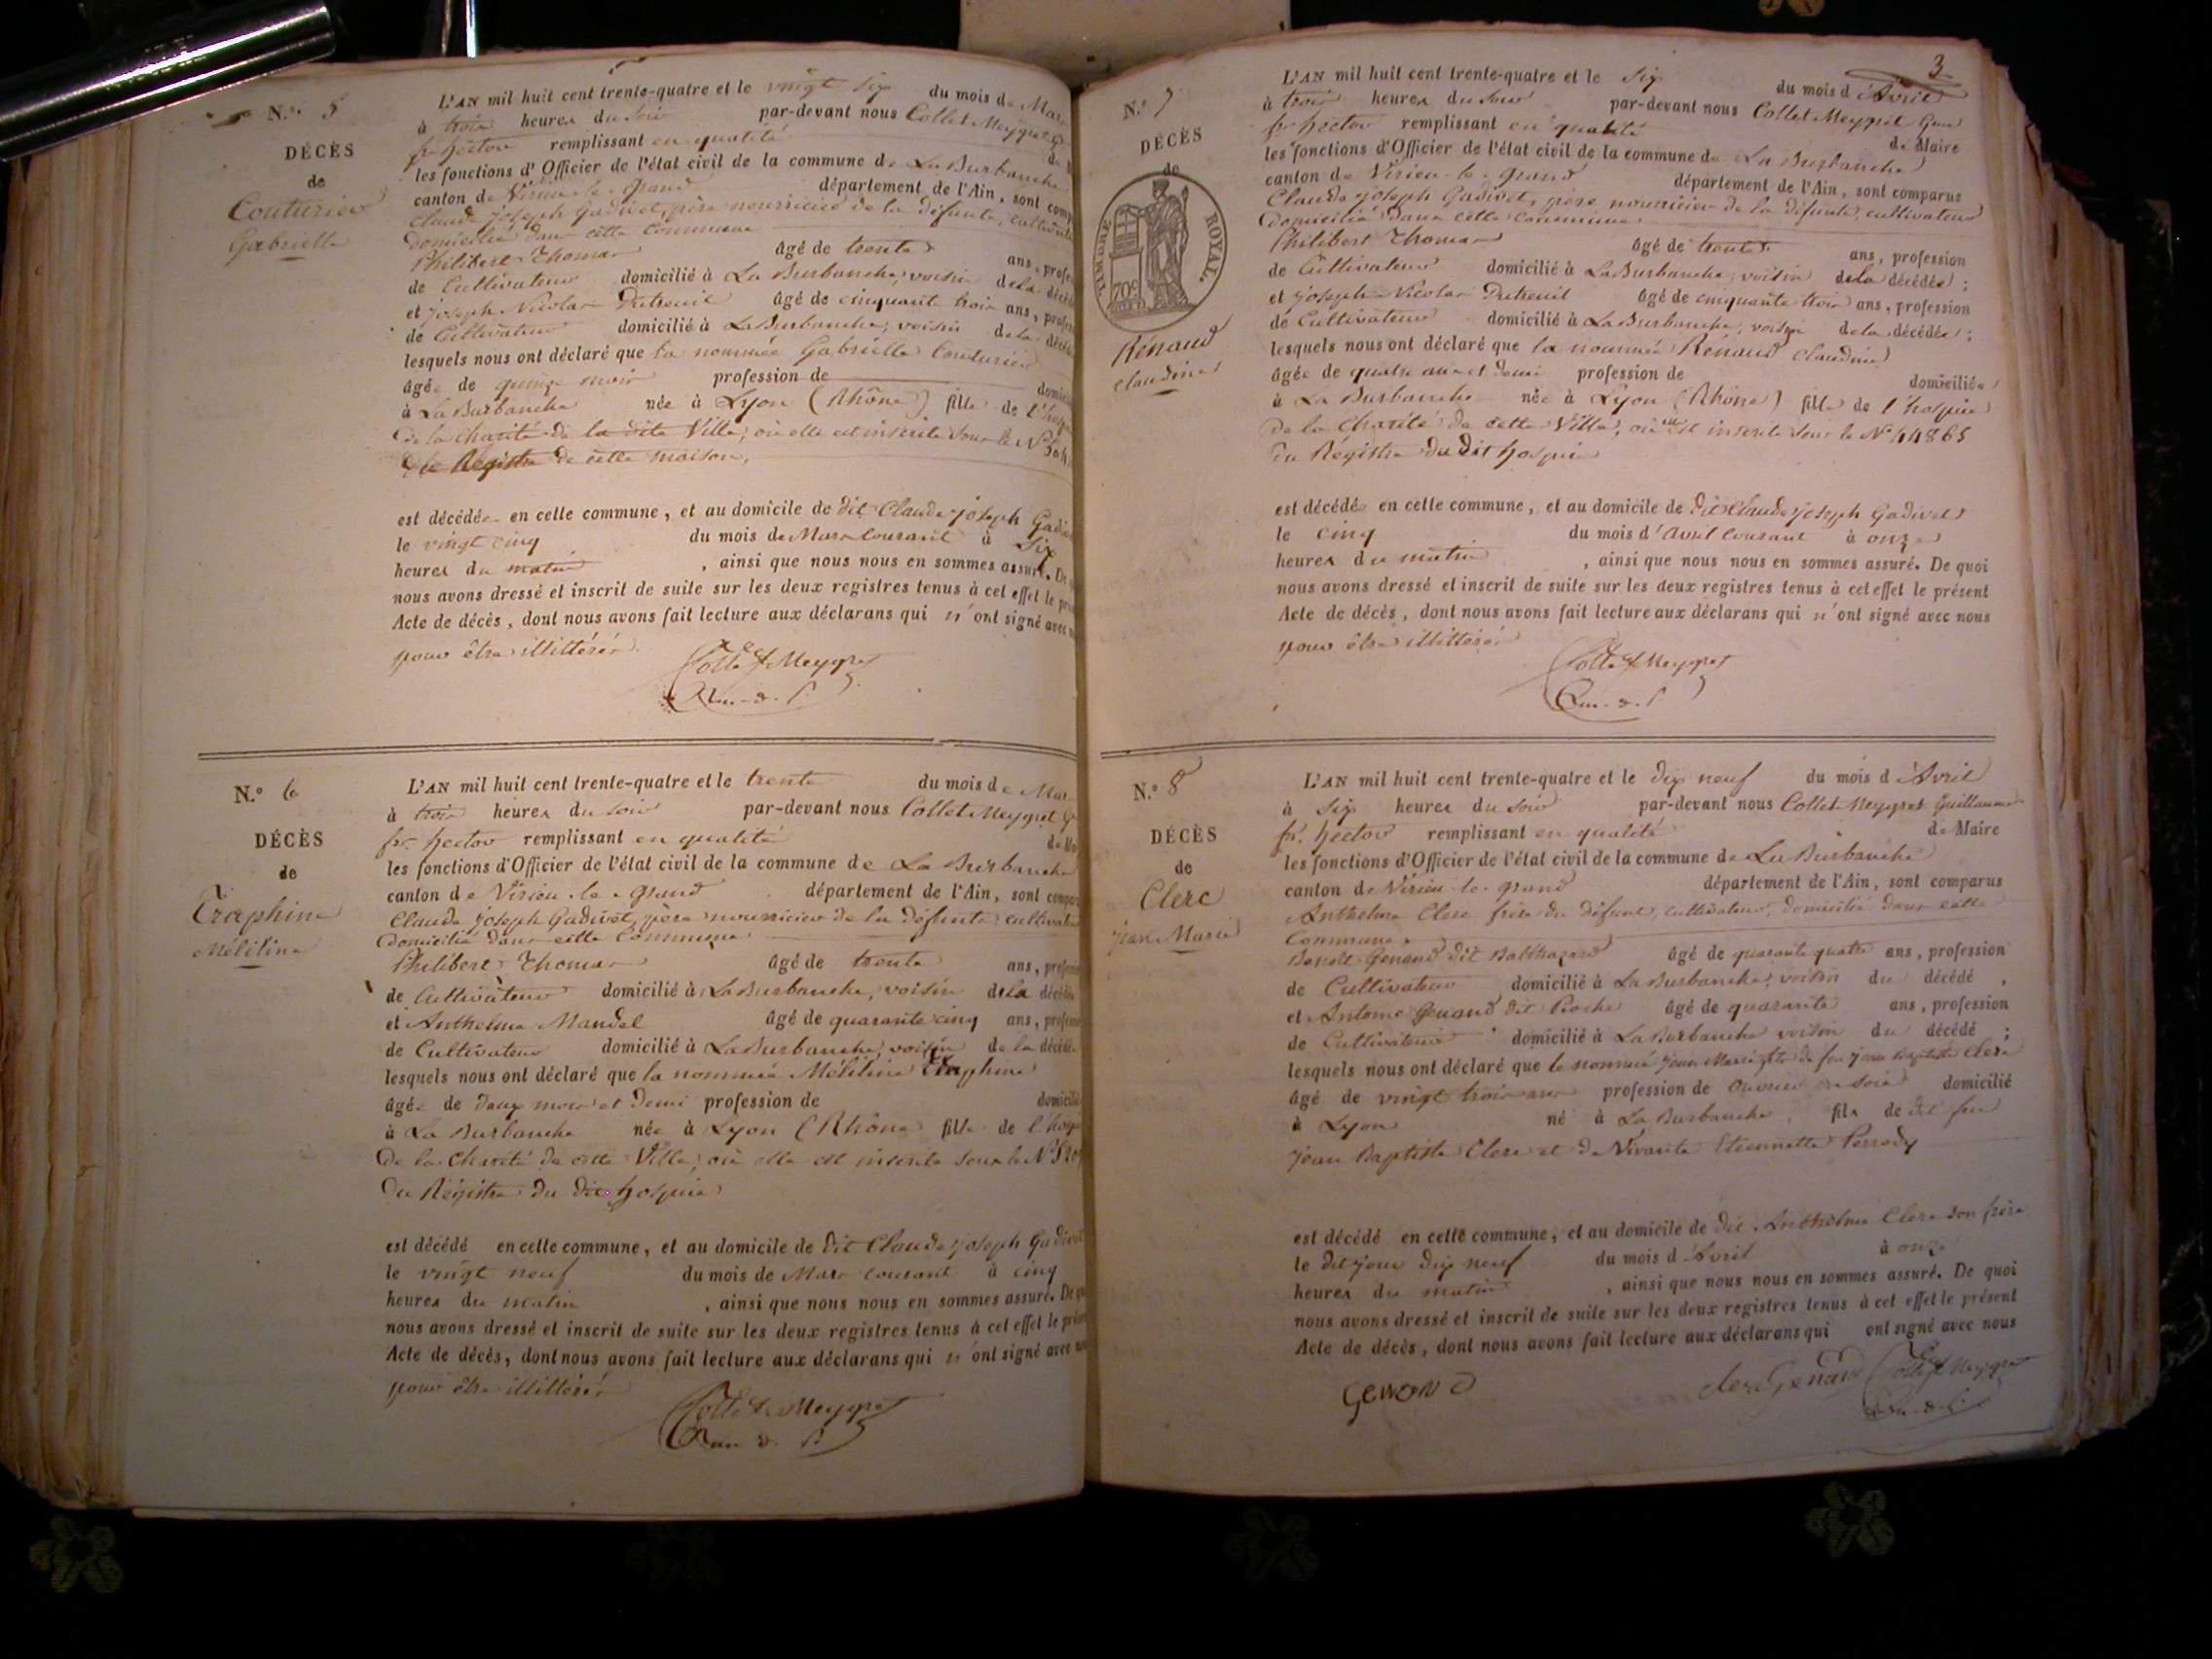 N.º 5
DÉCÈS
de
Couturier
Gabrielle
L'AN mil huit cent trente-quatre et le vingt six du mois de Mars
à trois heures du soir par-devant nous Collet Meygret
fs. hector remplissant en qualité
les fonctions d'Officier de l'état civil de la commune de La Burbanche
canton de Virieu-le-grand département de l'Ain, sont comp
Claude joseph Gadivet, père nourricier de la défunte, cultivate
domicilié dans cette commune
Philibert Thomas âgé de trente ans, profes
de Cultivateur domicilié à La Burbanche, voisin de la décé
et joseph Nicolas Dutreuil âgé de cinquante trois ans, profes
de Cultivateur domicilié à La Burbanche, voisin de la décéd
lesquels nous ont déclaré que la nommée Gabrielle Couturier
âgée de quinze mois profession de domici
à La Burbanche née à Lyon (Rhône) fille de l'hosp
de la Charité de la dite Ville, où elle est inscrite sous le N°
Registre de cette maison.
est décédée en cette commune, et au domicile de dit Claude joseph Gadiv
le vingt cinq du mois de Mars courant à six
heures du matin , ainsi que nous nous en sommes assuré. De
nous avons dressé et inscrit de suite sur les deux registres tenus à cet effet le pré
Acte de décès, dont nous avons fait lecture aux déclarans qui n'ont signé avec n
pour être illittérés.
Collet Meygret
N.º 6
DÉCÈS
de
Traphine
Mélitine
L'AN mil huit cent trente-quatre et le trente du mois de Mar
à trois heures du soir par-devant nous Collet Meygret G
fs. hector remplissant en qualité de Ma
les fonctions d'Officier de l'état civil de la commune de La Burbanche
canton de Virieu-le-grand département de l'Ain, sont compar
Claude joseph Gadivet, père nourricier de la défunte, cultivate
domicilié dans cette commune
Philibert Thomas âgé de trente ans, profess
de Cultivateur domicilié à La Burbanche, voisin de la décédé
et Anthelme Mandel âgé de quarante cinq ans, profess
de Cultivateur domicilié à La Burbanche, voisin de la décédé
lesquels nous ont déclaré que la nommée Mélitine Traphine
âgée de deux mois et demi profession de domicilié
à La Burbanche née à Lyon (Rhône fille de l'hosp
de la Charité de cette Ville, où elle est inscrite sous le N°
du Régistre du dit hospice
est décédé en cette commune, et au domicile de dit Claude joseph Gadivet
le vingt neuf du mois de Mars courant à cinq
heures du matin , ainsi que nous nous en sommes assuré. De qu
nous avons dressé et inscrit de suite sur les deux registres tenus à cet effet le prése
Acte de décès, dont nous avons fait lecture aux déclarans qui n'ont signé avec no
pour être illittérés
Collet Meygret
3
N.º 7
DÉCÈS
de
TIMBRE ROYAL.
70c
Rénaud
Claudine
L'AN mil huit cent trente-quatre et le six du mois d'Avril
à trois heures du soir par-devant nous Collet Meygret Gme
fs. hector remplissant en qualité de Maire
les fonctions d'Officier de l'état civil de la commune de La Burbanche
canton de Virieu-le-grand département de l'Ain, sont comparus
Claude joseph Gadivet, père nourricier de la défunte, cultivateur
domicilié dans cette commune.
Philibert Thomas âgé de trente ans, profession
de Cultivateur domicilié à La Burbanche, voisin de la décédée ;
et joseph Nicolas Dutreuil âgé de cinquante trois ans, profession
de Cultivateur domicilié à La Burbanche, voisin de la décédée ;
lesquels nous ont déclaré que la nommée Rénaud Claudine
âgée de quatre ans et demi profession de domiciliée
à La Burbanche née à Lyon (Rhône) fille de l'hospice
de la Charité de cette Ville, où elle est inscrite sous le N° 44865
du Régistre du dit hospice
est décédée en cette commune, et au domicile de dit Claude joseph Gadivet
le cinq du mois d'avril courant à onze
heures du matin , ainsi que nous nous en sommes assuré. De quoi
nous avons dressé et inscrit de suite sur les deux registres tenus à cet effet le présent
Acte de décès, dont nous avons fait lecture aux déclarans qui n'ont signé avec nous
pour être illittérés
Collet Meygret
N.º 8
DÉCÈS
de
Clerc
jean Marie
L'AN mil huit cent trente-quatre et le dix neuf du mois d'Avril
à six heures du soir par-devant nous Collet Meygret Guillaume
fs. hector remplissant en qualité de Maire
les fonctions d'Officier de l'état civil de la commune de La Burbanche
canton de Virieu-le-grand département de l'Ain, sont comparus
Anthelme Clerc frère du défunt, cultivateur, domicilié dans cette
Commune.
Benoît Genaud dit Balthazard âgé de quarante quatre ans, profession
de Cultivateur domicilié à La Burbanche, voisin du décédé ,
et Antoine Genaud dit Pioche âgé de quarante ans, profession
de Cultivateur domicilié à La Burbanche voisin du décédé ;
lesquels nous ont déclaré que le nommé jean Marie fils de feu jean Baptiste Clerc
âgé de vingt trois ans profession de ouvrier en soie domicilié
à Lyon né à La Burbanche, fils de dit feu
jean Baptiste Clerc et de Vivante Etiennette Perrody
est décédé en cette commune, et au domicile de dit Anthelme Clerc son frère
le dit jour dix neuf du mois d'Avril à onze
heures du matin , ainsi que nous nous en sommes assuré. De quoi
nous avons dressé et inscrit de suite sur les deux registres tenus à cet effet le présent
Acte de décès, dont nous avons fait lecture aux déclarans qui ont signé avec nous
Genond
clerc Genaud Collet Meygret